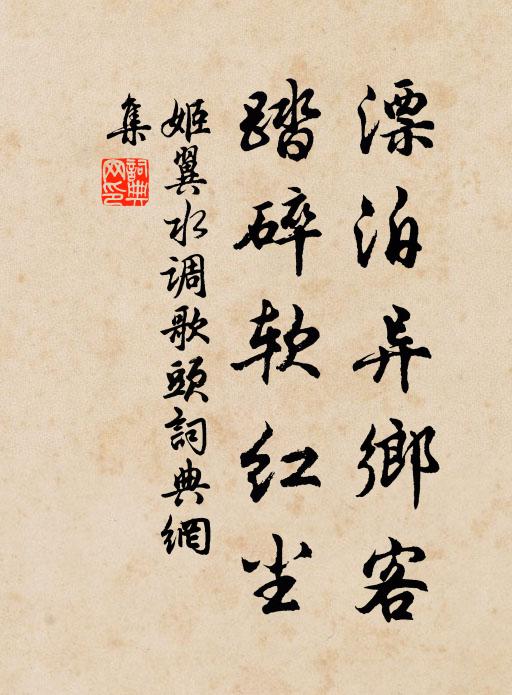 漂泊异鄉客
踏碎软红尘
姬翼水调歌頭詞典網
集
詞典
网印